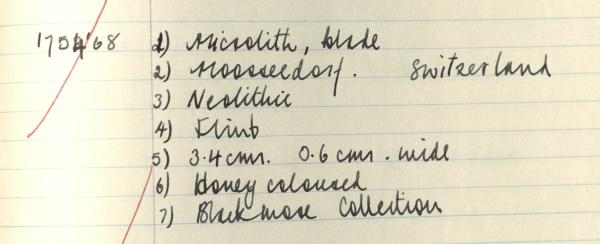 1754'68 1) Microlith, blade
2) Moosseedorf. Switzerland
3) Neolithic
4) Flint
5) 3.4 cms. 0.6 cms. wide
6) Honey coloured
7) Blackmore Collection